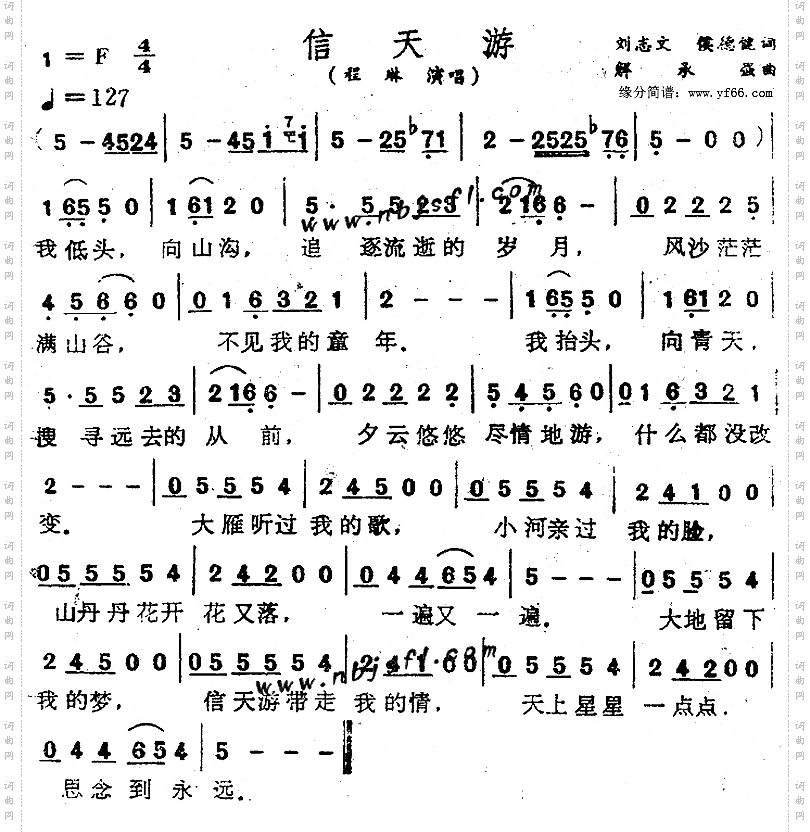 信天游
1 = F 4/4
刘志文 侯德健词
(程琳 演唱)
解承强曲
♩=127
缘分简谱：www.yf66.com
(5 - 4524 | 5 - 45i 7i | 5 - 25b71 | 2 - 2525b76 | 5 - 0 0)
1 65 5 0 | 1 61 2 0 | 5· 5 5 23 | 2 16 6 - | 0 2 2 2 5
www.nbjsfl.com
我低头， 向山沟， 追 逐流逝的 岁 月， 风沙茫茫
4 5 6 6 0 | 0 1 6 3 2 1 | 2 - - - | 1 65 5 0 | 1 61 2 0
满山谷， 不见我的童 年． 我抬头， 向青天．
5· 5 5 2 3 | 2 16 6 - | 0 2 2 2 2 | 5 4 5 6 0 | 0 1 6 3 2 1
搜 寻远去的 从 前， 夕云悠悠 尽情地游， 什么都没改
2 - - - | 0 5 5 5 4 | 2 4 5 0 0 | 0 5 5 5 4 | 2 4 1 0 0
变． 大雁听过 我的歌， 小河亲过 我的脸，
0 5 5 5 5 4 | 2 4 2 0 0 | 0 4 4 6 5 4 | 5 - - - | 0 5 5 5 4
山丹丹花开 花又落， 一遍又 一 遍． 大地留下
2 4 5 0 0 | 0 5 5 5 5 5 4 | 2 4 1 0 0 | 0 5 5 5 4 | 2 4 2 0 0
www.nbjsfl.com
我的梦， 信天游带走 我的情， 天上星星 一点点．
0 4 4 6 5 4 | 5 - - -
思念到永远．
词曲网